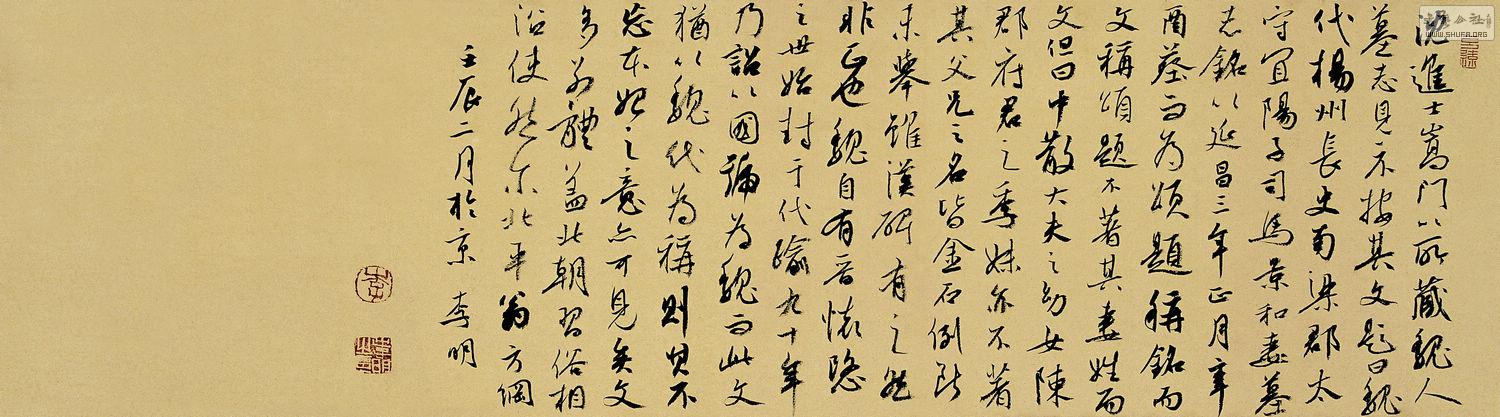 沈進士嵩門以所藏魏人
墓志見示按其文題曰魏
代楊州長史南梁郡太
守宜陽子司馬景和妻墓
志銘以延昌三年正月辛
酉葬而為頌題稱銘而
文稱頌題不著其妻姓而
文但曰中散大夫之幼女陳
郡府君之季妹亦不著
其父兄之名皆金石例所
未舉雖漢碑有之然
非正也魏自有晉懷隱
之世始封于代踰九十年
乃詔以國號為魏而此文
猶以魏代為稱則見不
忘本始之意亦可見矣文
多別體蓋北朝習俗相
沿使然尔北平翁方綱
壬辰二月於京 李明
WWW.SHUFA.ORG